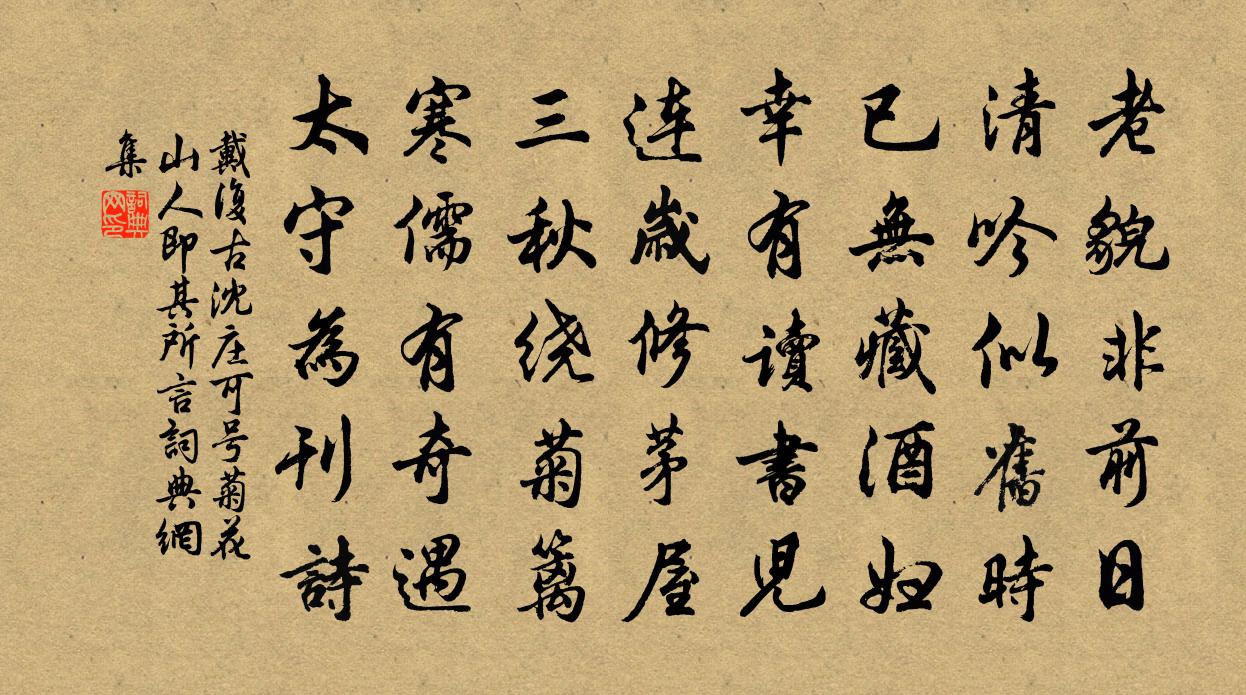 老貌非前日
清吟似舊時
已無藏酒婦
幸有讀書兒
连歲修茅屋
三秋绕菊籬
寒儒有奇遇
太守為刊詩
戴復古沈庄可号菊花
山人即其所言詞典網
集
詞典
网印